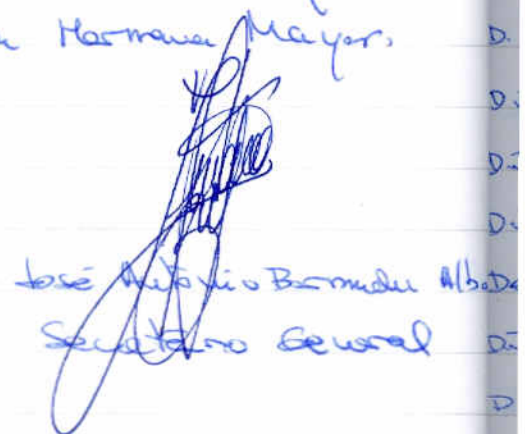 Hermana Mayor.
José Antonio Bermudu Alb.
Secretario General
D.
D.
D.
D.
D.
D.
D